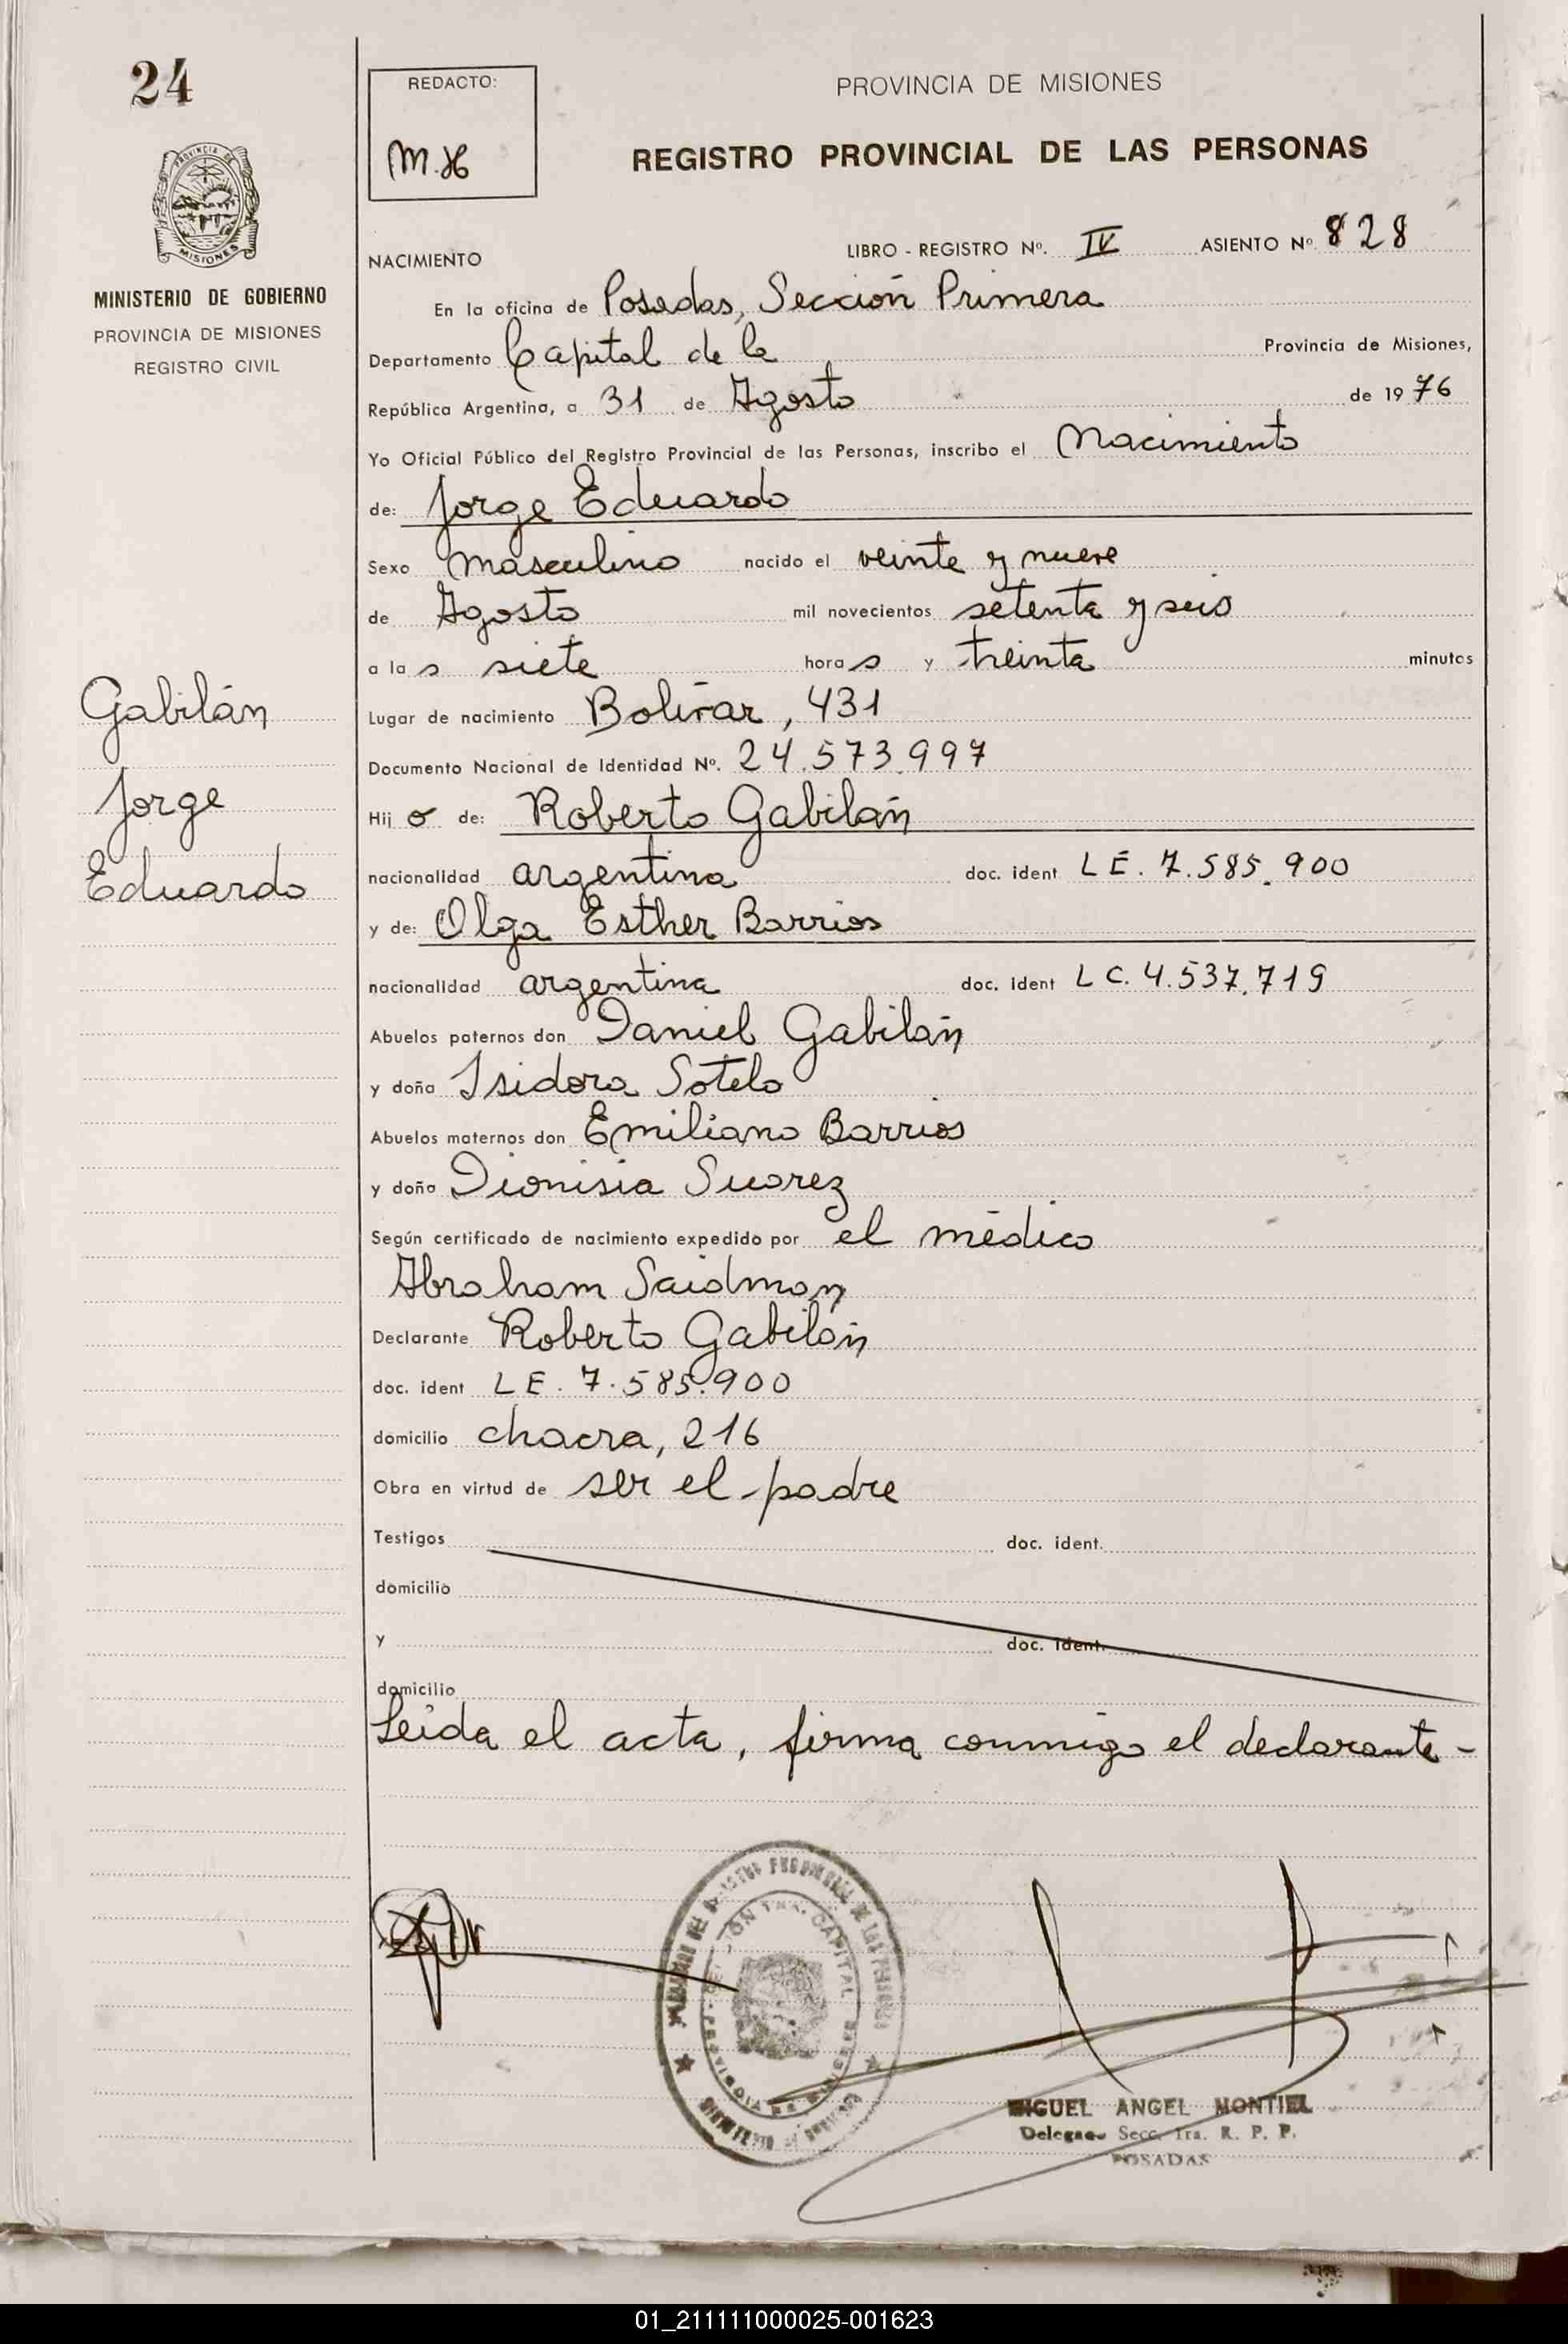 24
PROVINCIA DE
MISIONES
MINISTERIO DE GOBIERNO
PROVINCIA DE MISIONES
REGISTRO CIVIL
Gabilán
Jorge
Eduardo
REDACTO:
PROVINCIA DE MISIONES
REGISTRO PROVINCIAL DE LAS PERSONAS
NACIMIENTO LIBRO - REGISTRO Nº. IV ASIENTO Nº 828
En la oficina de Posadas, Sección Primera
Departamento Capital de la Provincia de Misiones,
República Argentina, a 31 de Agosto de 1976
Yo Oficial Público del Registro Provincial de las Personas, inscribo el Nacimiento
de: Jorge Eduardo
Sexo masculino nacido el veinte y nueve
de Agosto mil novecientos setenta y seis
a las siete horas y treinta minutos
Lugar de nacimiento Bolívar, 431
Documento Nacional de Identidad Nº. 24.573.997
Hijo de: Roberto Gabilán
nacionalidad argentina doc. ident LE. 7.585.900
y de: Olga Esther Barrios
nacionalidad argentina doc. ident LC. 4.537.719
Abuelos paternos don Daniel Gabilán
y doña Isidora Sotelo
Abuelos maternos don Emiliano Barrios
y doña Dionisia Suarez
Según certificado de nacimiento expedido por el médico
Abraham Saidman
Declarante Roberto Gabilán
doc. ident LE. 7.585.900
domicilio chacra, 216
Obra en virtud de ser el padre
Testigos doc. ident.
domicilio
y doc. ident.
domicilio
Leída el acta, firma conmigo el declarante -
MIGUEL ANGEL MONTIEL
Delegado Secc. 1ra. R. P. P.
POSADAS
01_211111000025-001623